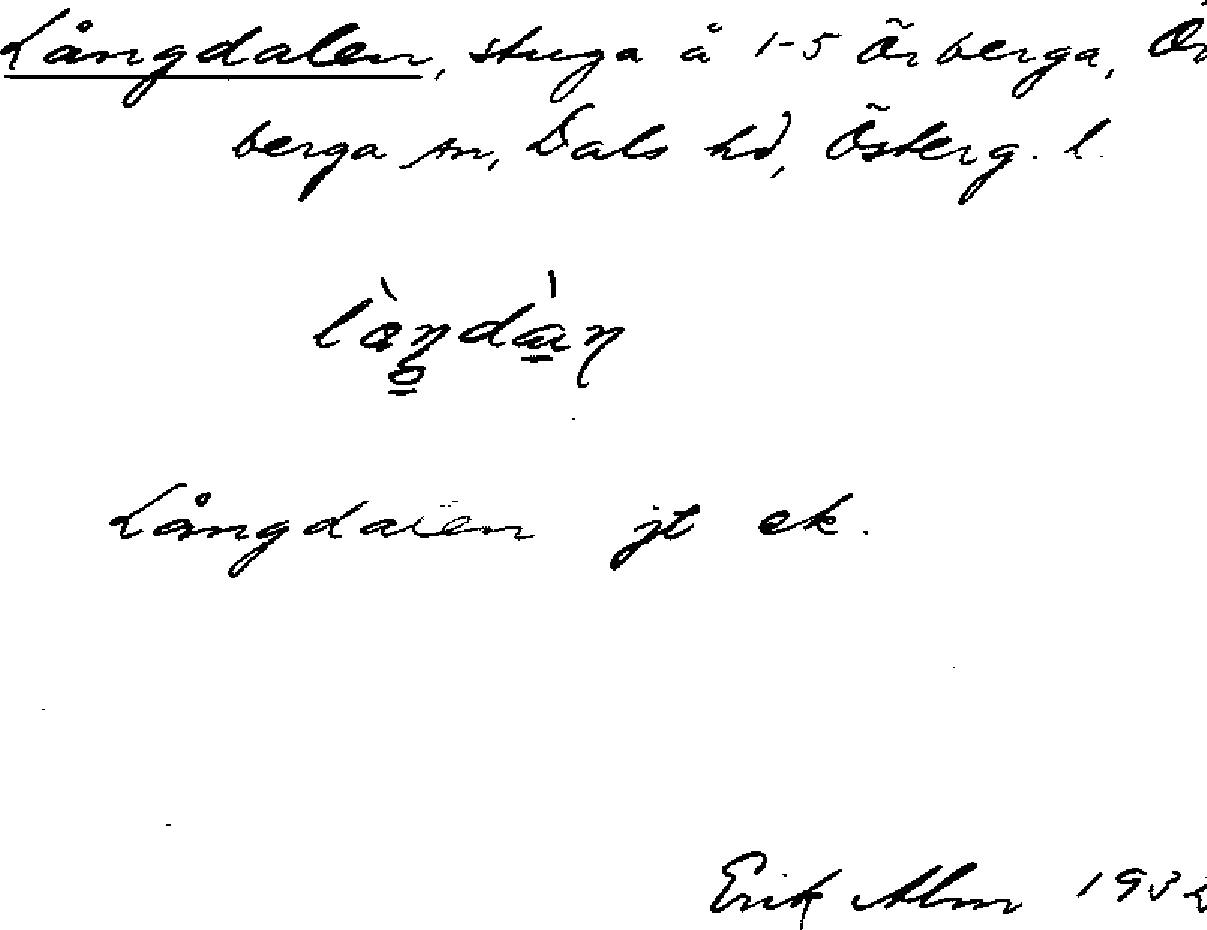 Långdalen, stuga å 1-5 Örberga, Ör
berga sn, Dals hd, Österg. l.
Långdalen jt ek.
Erik Alm 1932